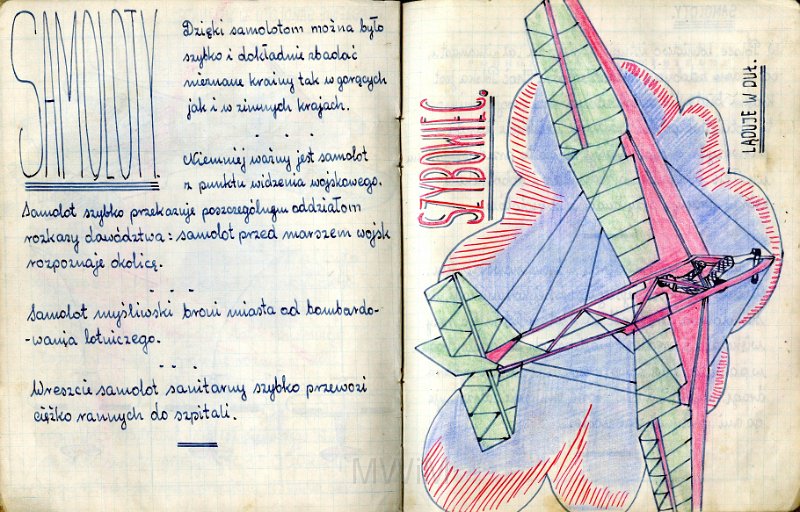 SAMOLOTY.
Dzięki samolotom można było
szybko i dokładnie zbadać
nieznane krainy tak w gorących
jak i w zimnych krajach.
Niemniej ważny jest samolot
z punktu widzenia wojskowego.
Samolot szybko przekazuje poszczególnym oddziałom
rozkazy dowództwa: samolot przed marszem wojsk
rozpoznaje okolicę.
Samolot myśliwski broni miasta od bombardo-
-wania lotniczego.
Wreszcie samolot sanitarny szybko przewozi
ciężko rannych do szpitali.
SZYBOWIEC.
LĄDUJE W DUŁ.